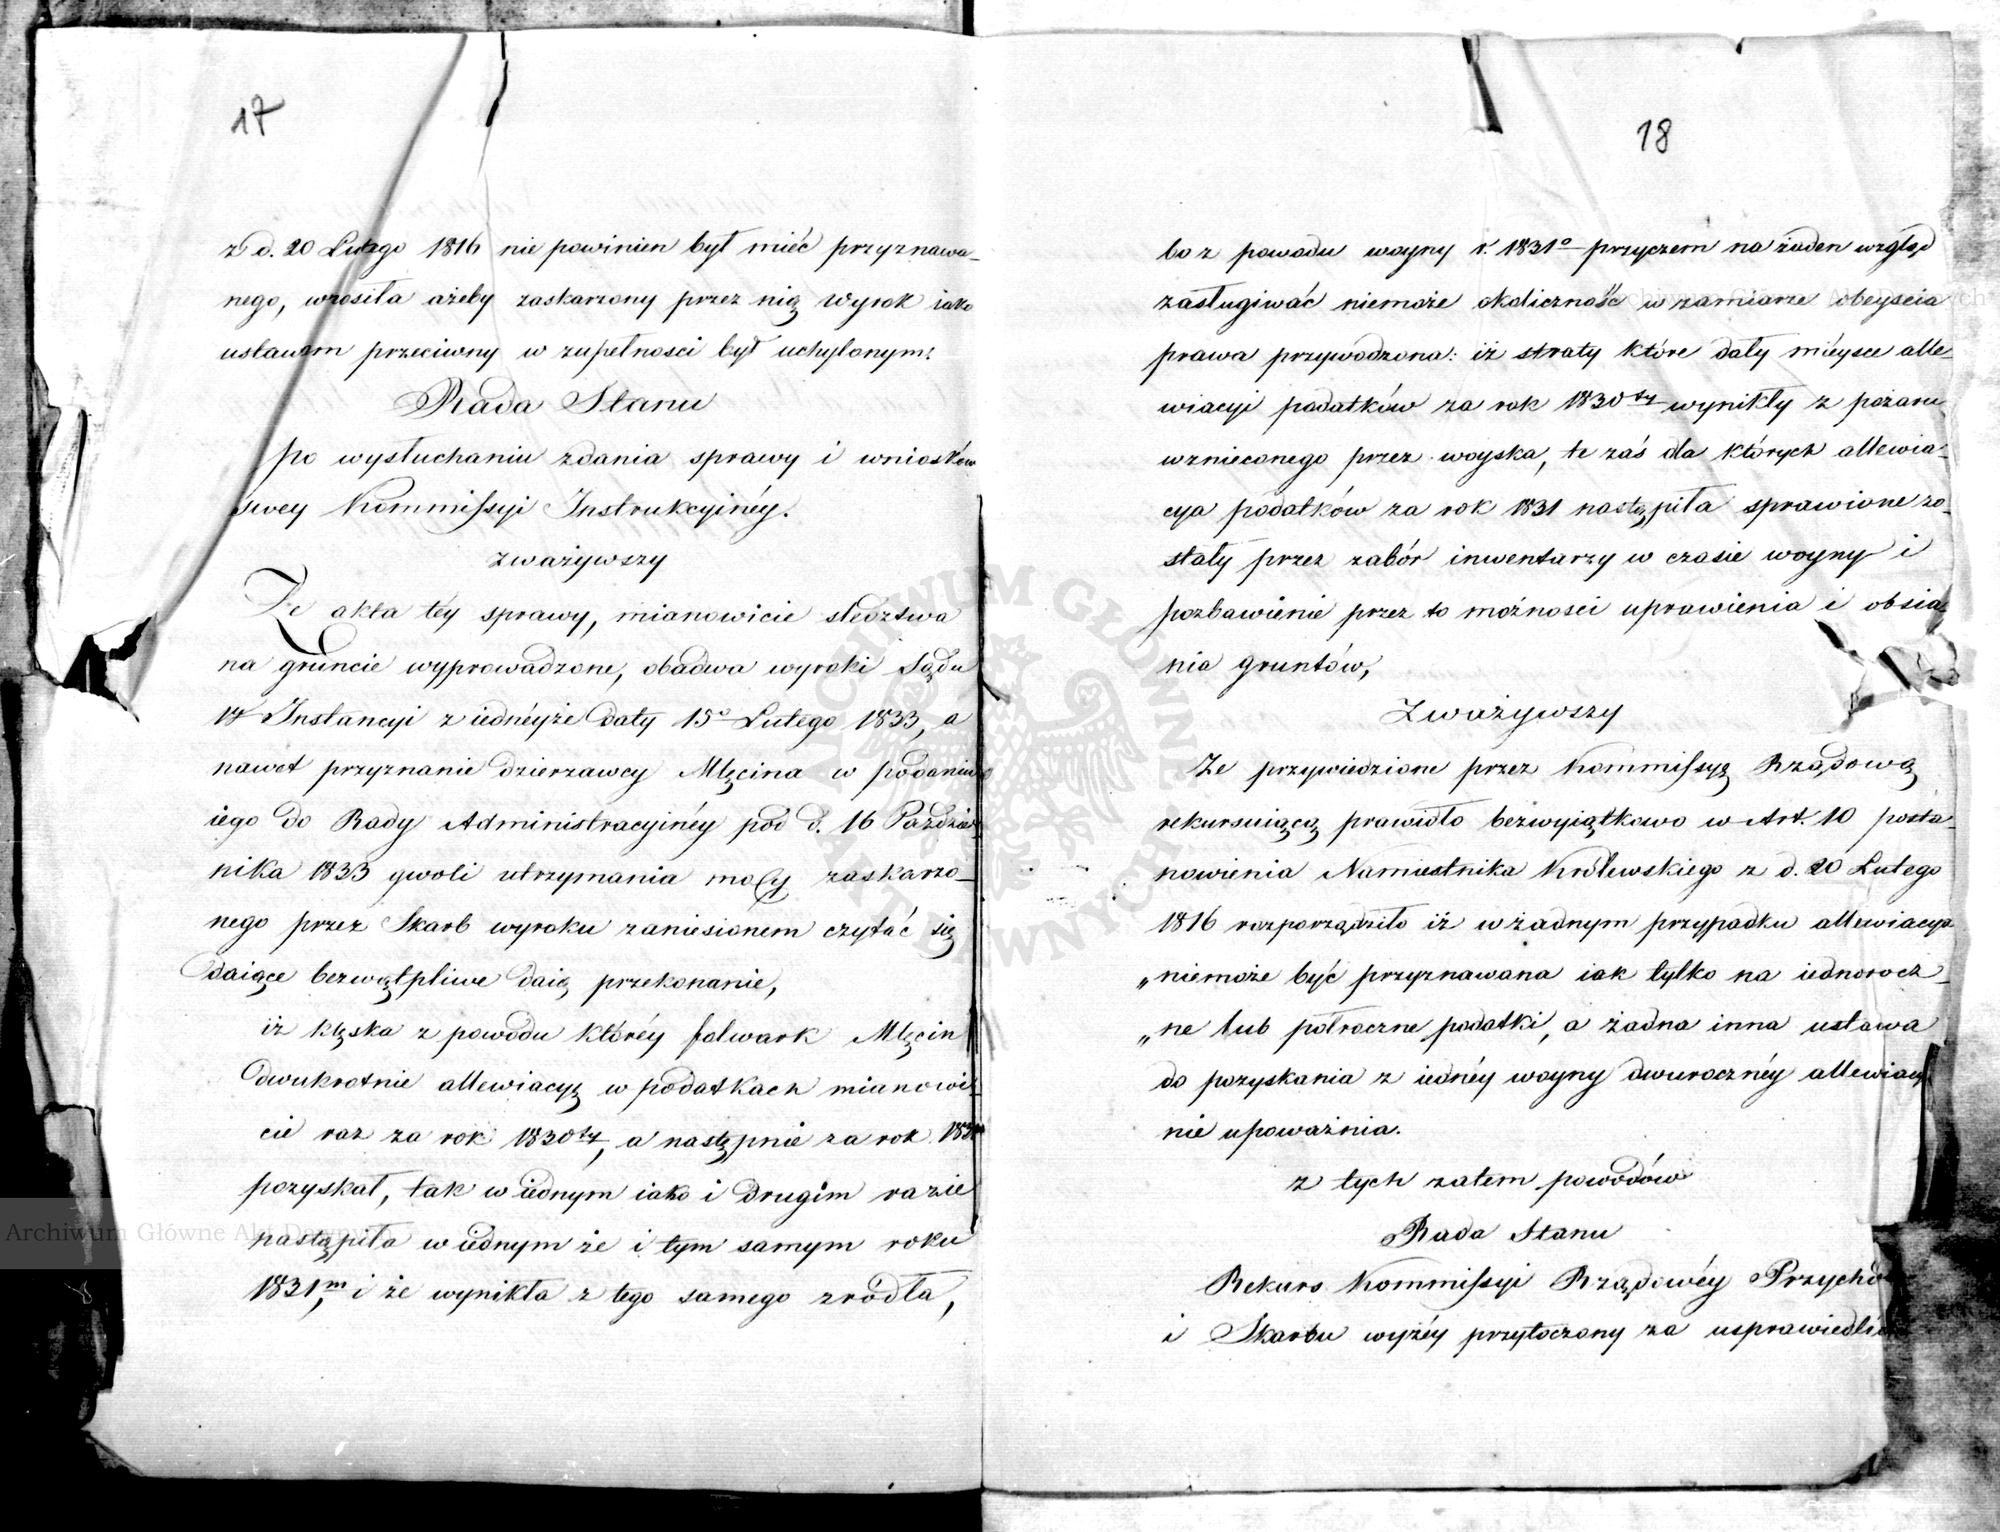 17
z d. 20 Lutego 1816 nie powinien był mieć przyznawa-
nego, wnosiła ażeby zaskarzony przez nią wyrok iako
ustawom przeciwny w zupełności był uchylonym:
Rada Stanu
po wysłuchaniu zdania sprawy i wniosków
swey Kommissyi Instrukcyinéy.
zważywszy
Że akta téy sprawy, mianowicie sledztwa
na gruncie wyprowadzone, obadwa wyroki Sądu
Instancyi z iednéyże daty 15º Lutego 1833, a
nawet przyznanie dzierzawcy Mlęcina w podaniu
iego do Rady Administracyinéy pod d. 16 Paździer
nika 1833 gwoli utrzymania mocy zaskarzo-
nego przez Skarb wyroku zaniesionem czytać się
daiące bezwątpliwe daią przekonanie,
iż klęska z powodu któréy folwark Mlęcin
dwukrotnie allewiacyą w podatkach mianowi-
cie raz za rok 1830ty, a następnie za rok 1831
pozyskał, tak w iednym iako i drugim razie
nastąpiła w iednym że i tym samym roku
1831m, i że wynikła z tego samego zrodła,
18
bo z powodu woyny r. 1831º przyczem na żaden wzgląd
zasługiwać niemoże okoliczność w zamiarze obeyscia
prawa przywodzona: iż straty które dały miéysce alle-
wiacyi podatków za rok 1830ty wynikły z pożaru
wznieconego przez woyska, te zaś dla których allewia-
cya podatków za rok 1831 nastąpiła sprawione zo-
stały przez zabór inwentarzy w czasie woyny i
pozbawienie przez to możności uprawienia i obsia-
nia gruntów,
Zważywszy
Że przywiedzione przez Kommissyą Rządową
rekursuiącą prawidło bezwyiątkowo w Art. 10 posta-
nowienia Namiestnika Królewskiego z d. 20 Lutego
1816 rozporządziło iż w żadnym przypadku allewiacya
„niemoże być przyznawana iak tylko na iednorocz-
„ne lub półroczne podatki, a żadna inna ustawa
do pozyskania z iednéy woyny dwuroczney allewiacyi
nie upoważnia.
z tych zatem powodów
Rada Stanu
Rekurs Kommissyi Rządowéy Przycho
i Skarbu wyżéy przytoczony za usprawiedli
Archiwum Główne Akt Dawnych